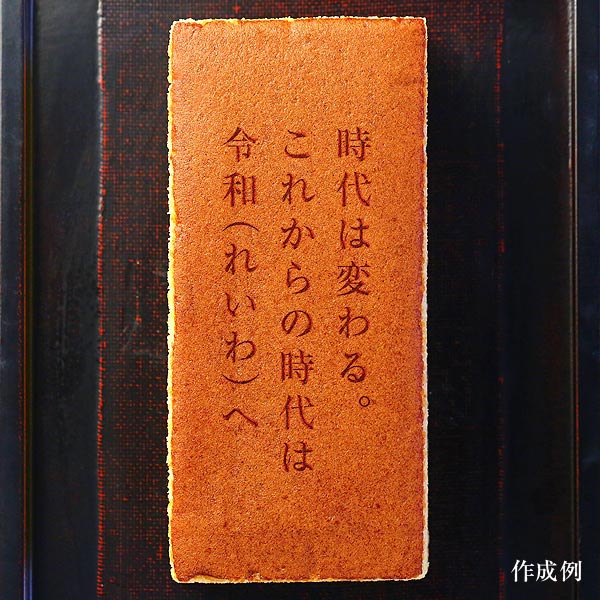 時代は変わる。
これからの時代は
令和(れいわ)へ
作成例